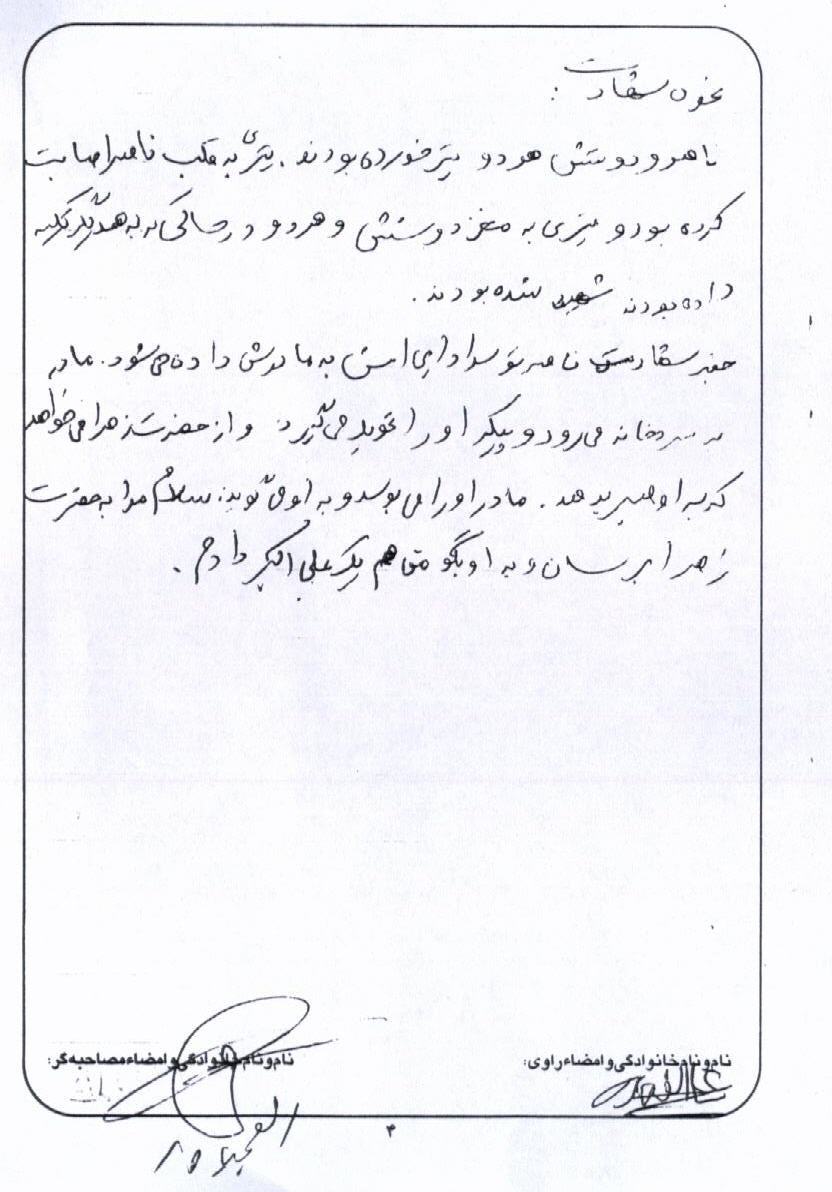 نحوه شهادت :
ناصر و دوستش هر دو تیر خورده بودند. تیری به قلب ناصر اصابت
کرده بود و تیری به مغز دوستش و هر دو در حالی که به همدیگر تکیه
داده بودند شهید شده بودند.
خبر شهادت ناصر توسط دایی اش به مادرش داده می شود. مادر
به سردخانه می رود و پیکر او را تحویل می گیرد و از حضرت زهرا می خواهد
که به او صبر بدهد. مادر او را می بوسد و به او می گوید: سلام مرا به حضرت
زهرا برسان و به او بگو من هم یک علی اکبر دادم.
نام و نام خانوادگی و امضاء راوی:
نام و نام خانوادگی و امضاء مصاحبه گر:
۳